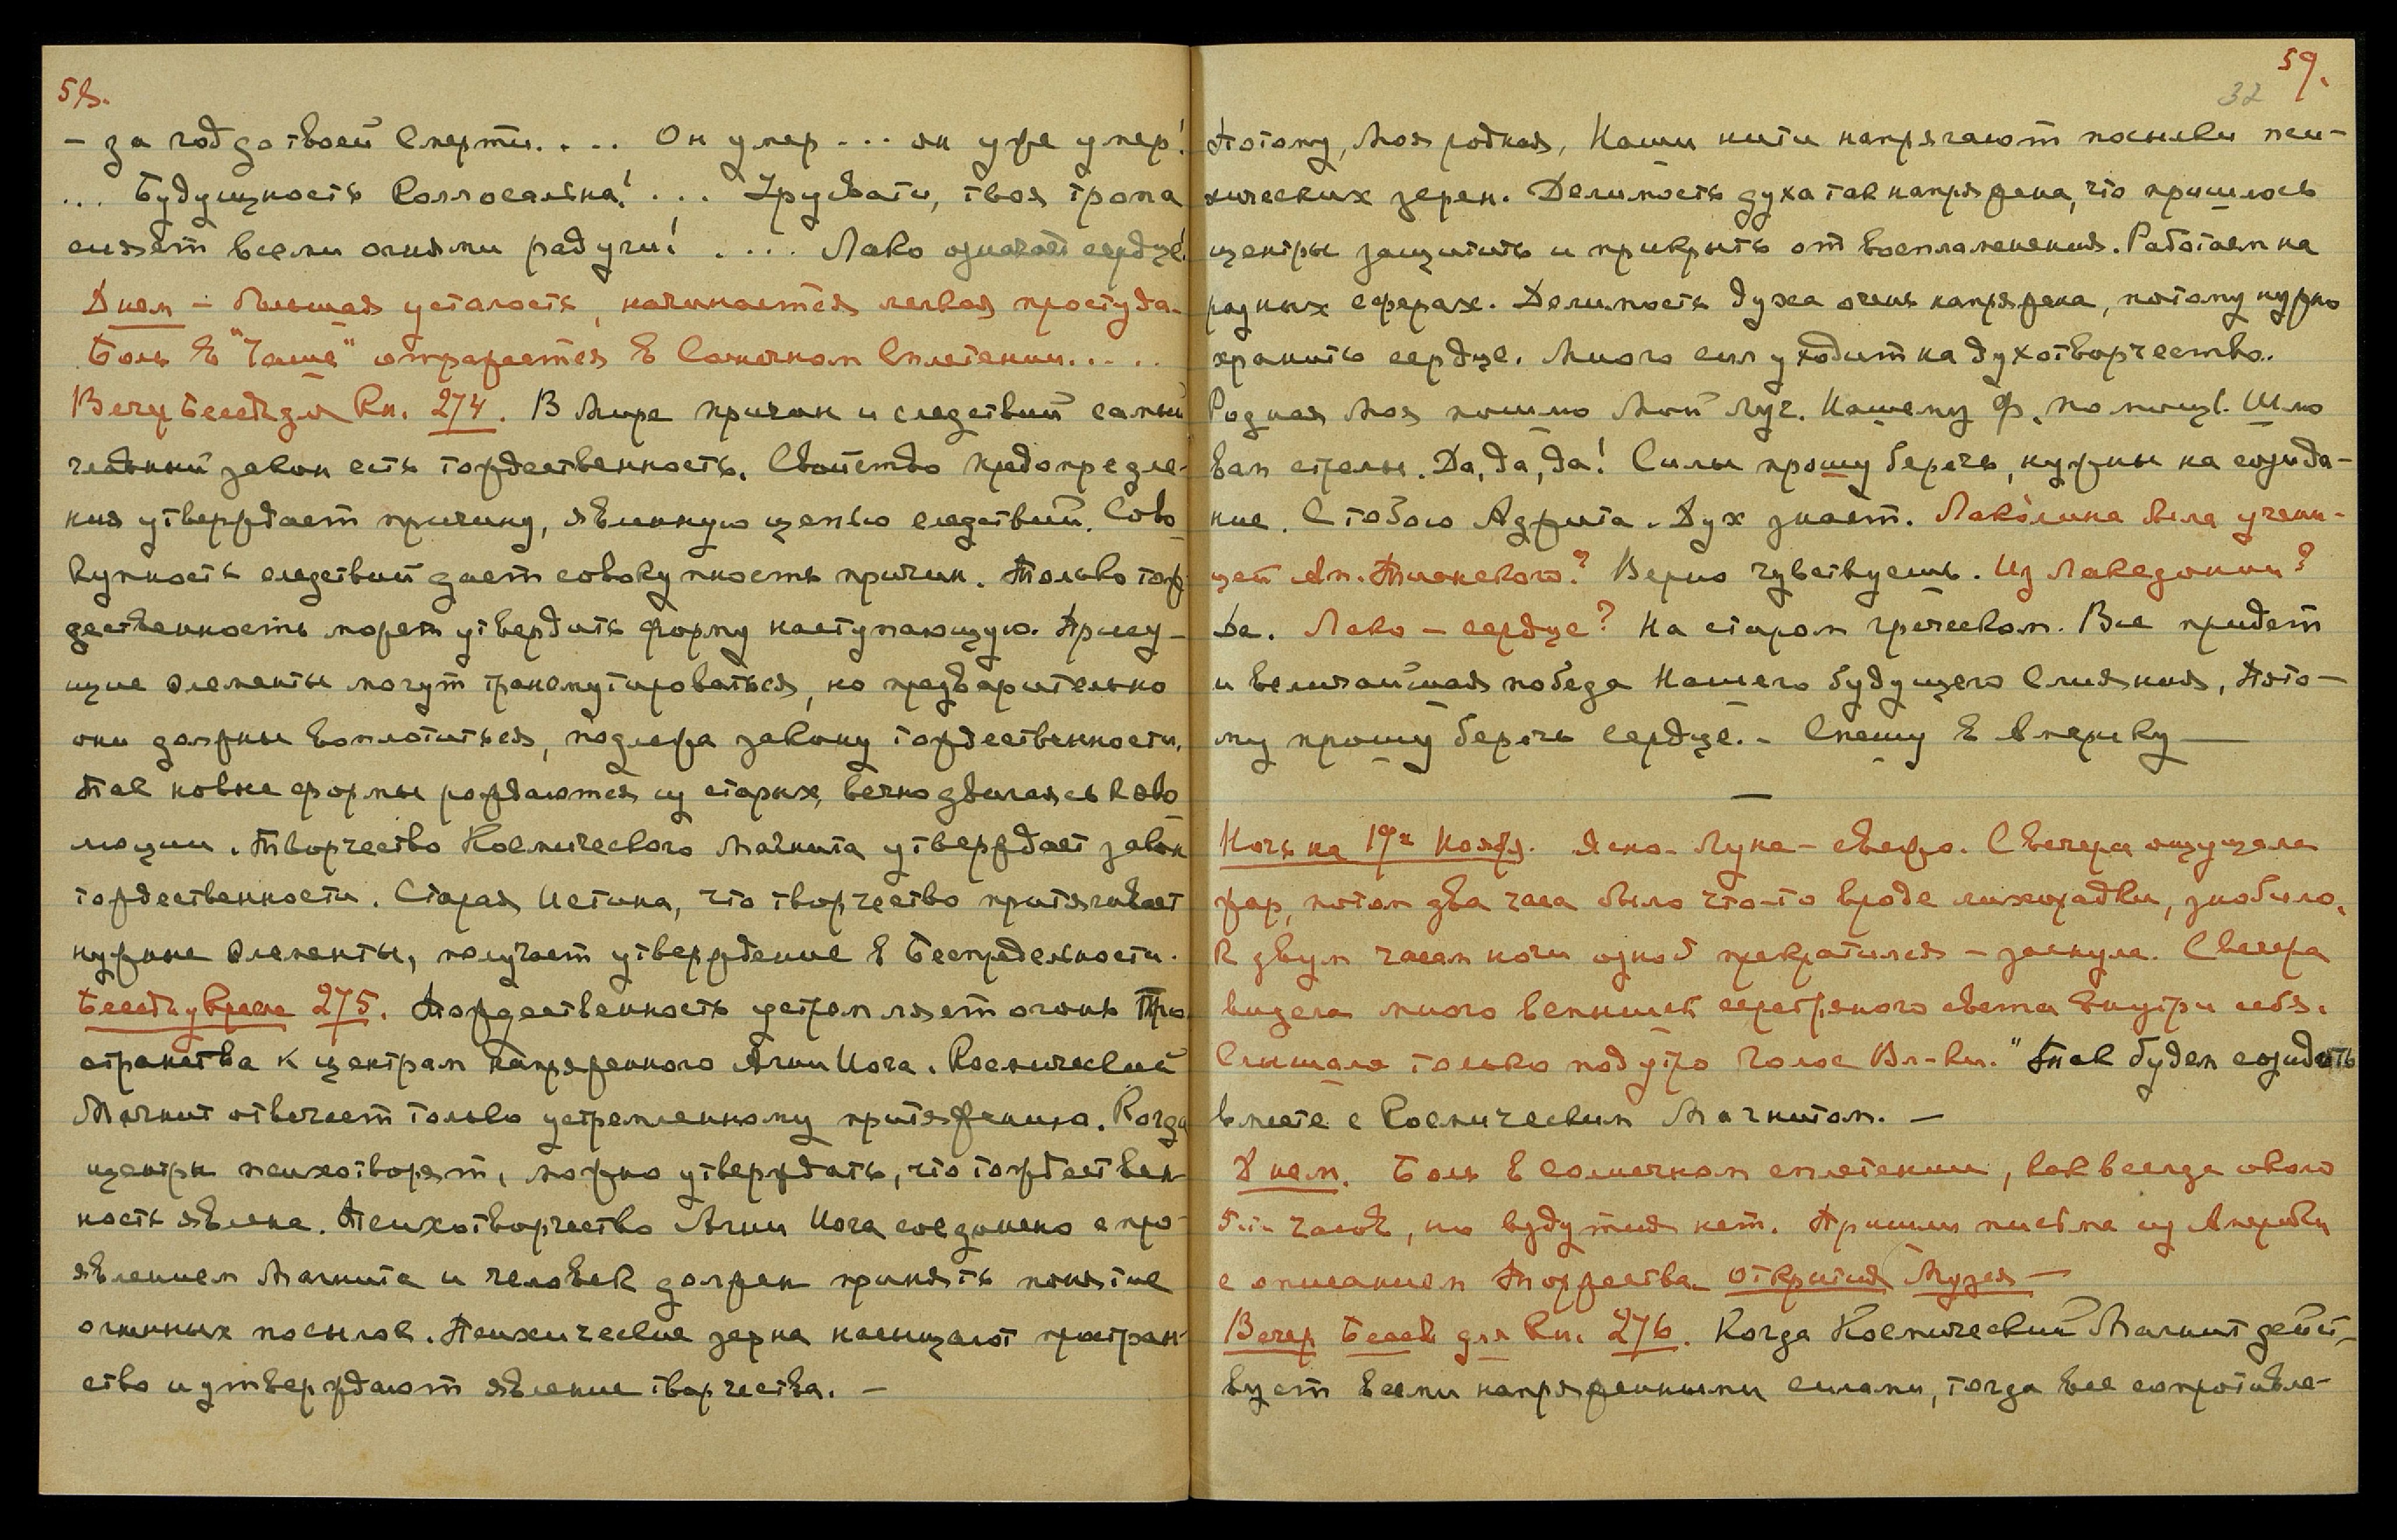 58.
– за год до твоей Смерти. . . . Он умер . . . он уже умер!
. . . Будущность Коллосальна! . . . Урувати, твоя тропа
сияет всеми огнями радуги! . . . . Лако означает сердце!
Днем – большая усталость, начинается легкая простуда.
Боль в "Чаше" отражается в Солнечном Сплетении. . . . .
Веч. Беседа для Кн. 274. В Мире причин и следствий самый
главный закон есть тождественность. Свойство предопределе-
ния утверждает причину, явленную цепью следствий. Сово-
купность следствий дает совокупность причин. Только тож
дественность может утвердить форму наступающую. Прису-
щие элементы могут трансмутироваться, но предварительно
они должны воплотиться, подлежа закону тождественности.
Так новые формы рождаются из старых, вечно двигаясь к эво
люции. Творчество Космического Магнита утверждает закон
тождественности. Старая Истина, что творчество притягивает
нужные элементы, получает утверждение в Беспредельности.
Беседа у Кресла 275. Тождественность устремляет огонь Про
странства к центрам напряженного Агни Йога. Космический
Магнит отвечает только устремленному притяжению. Когда
центры психотворят, можно утверждать, что тождествен
ность явлена. Психотворчество Агни Йога соединено с про-
явлением Магнита и человек должен принять понятие
огненных посылок. Психические зерна насыщают простран-
ство и утверждают явление творчества. –
59.
32
Потому, Моя родная, Наши нити напрягают посылки пси-
хических зерен. Делимость духа так напряжена, что пришлось
центры защитить и прикрыть от воспламенения. Работаем на
разных сферах. Делимость духа очень напряжена, потому нужно
хранить сердце. Много сил уходит на духотворчество.
Родная Моя пошлю Мой Луч. Нашему Ф. помощь. Шлю
вам стрелы. Да, да, да! Силы прошу беречь, нужны на созида-
ние. С тобою Адрита. Дух знает. Лаколина была учени-
цей Ап. Тианского? Верно чувствуешь. Из Македонии?
Да. Лако – сердце? На старом греческом. Все придет
и величайшая победа Нашего будущего Слияния, Пото-
му прошу беречь Сердце. – Спешу в Америку —
—
Ночь на 19ое Ноябр. Ясно. Луна – свежо. С вечера ощущала
жар, потом два часа было что-то вроде лихорадки, знобило,
к двум часам ночи озноб прекратился – заснула. С вечера
видела много вспышек серебряного света внутри себя.
Слышала только под утро Голос Вл-ки. "Так будем созидать
вместе с Космическим Магнитом. –
Днем. Боль в солнечном сплетении, как всегда около
5-ти часов, но вздутия нет. Пришли письма из Америки
с описанием Торжества Открытия Музея —
Вечер Бесед. для Кн. 276. Когда Космический Магнит дейст-
вует всеми напряженными силами, тогда все сопротивле-